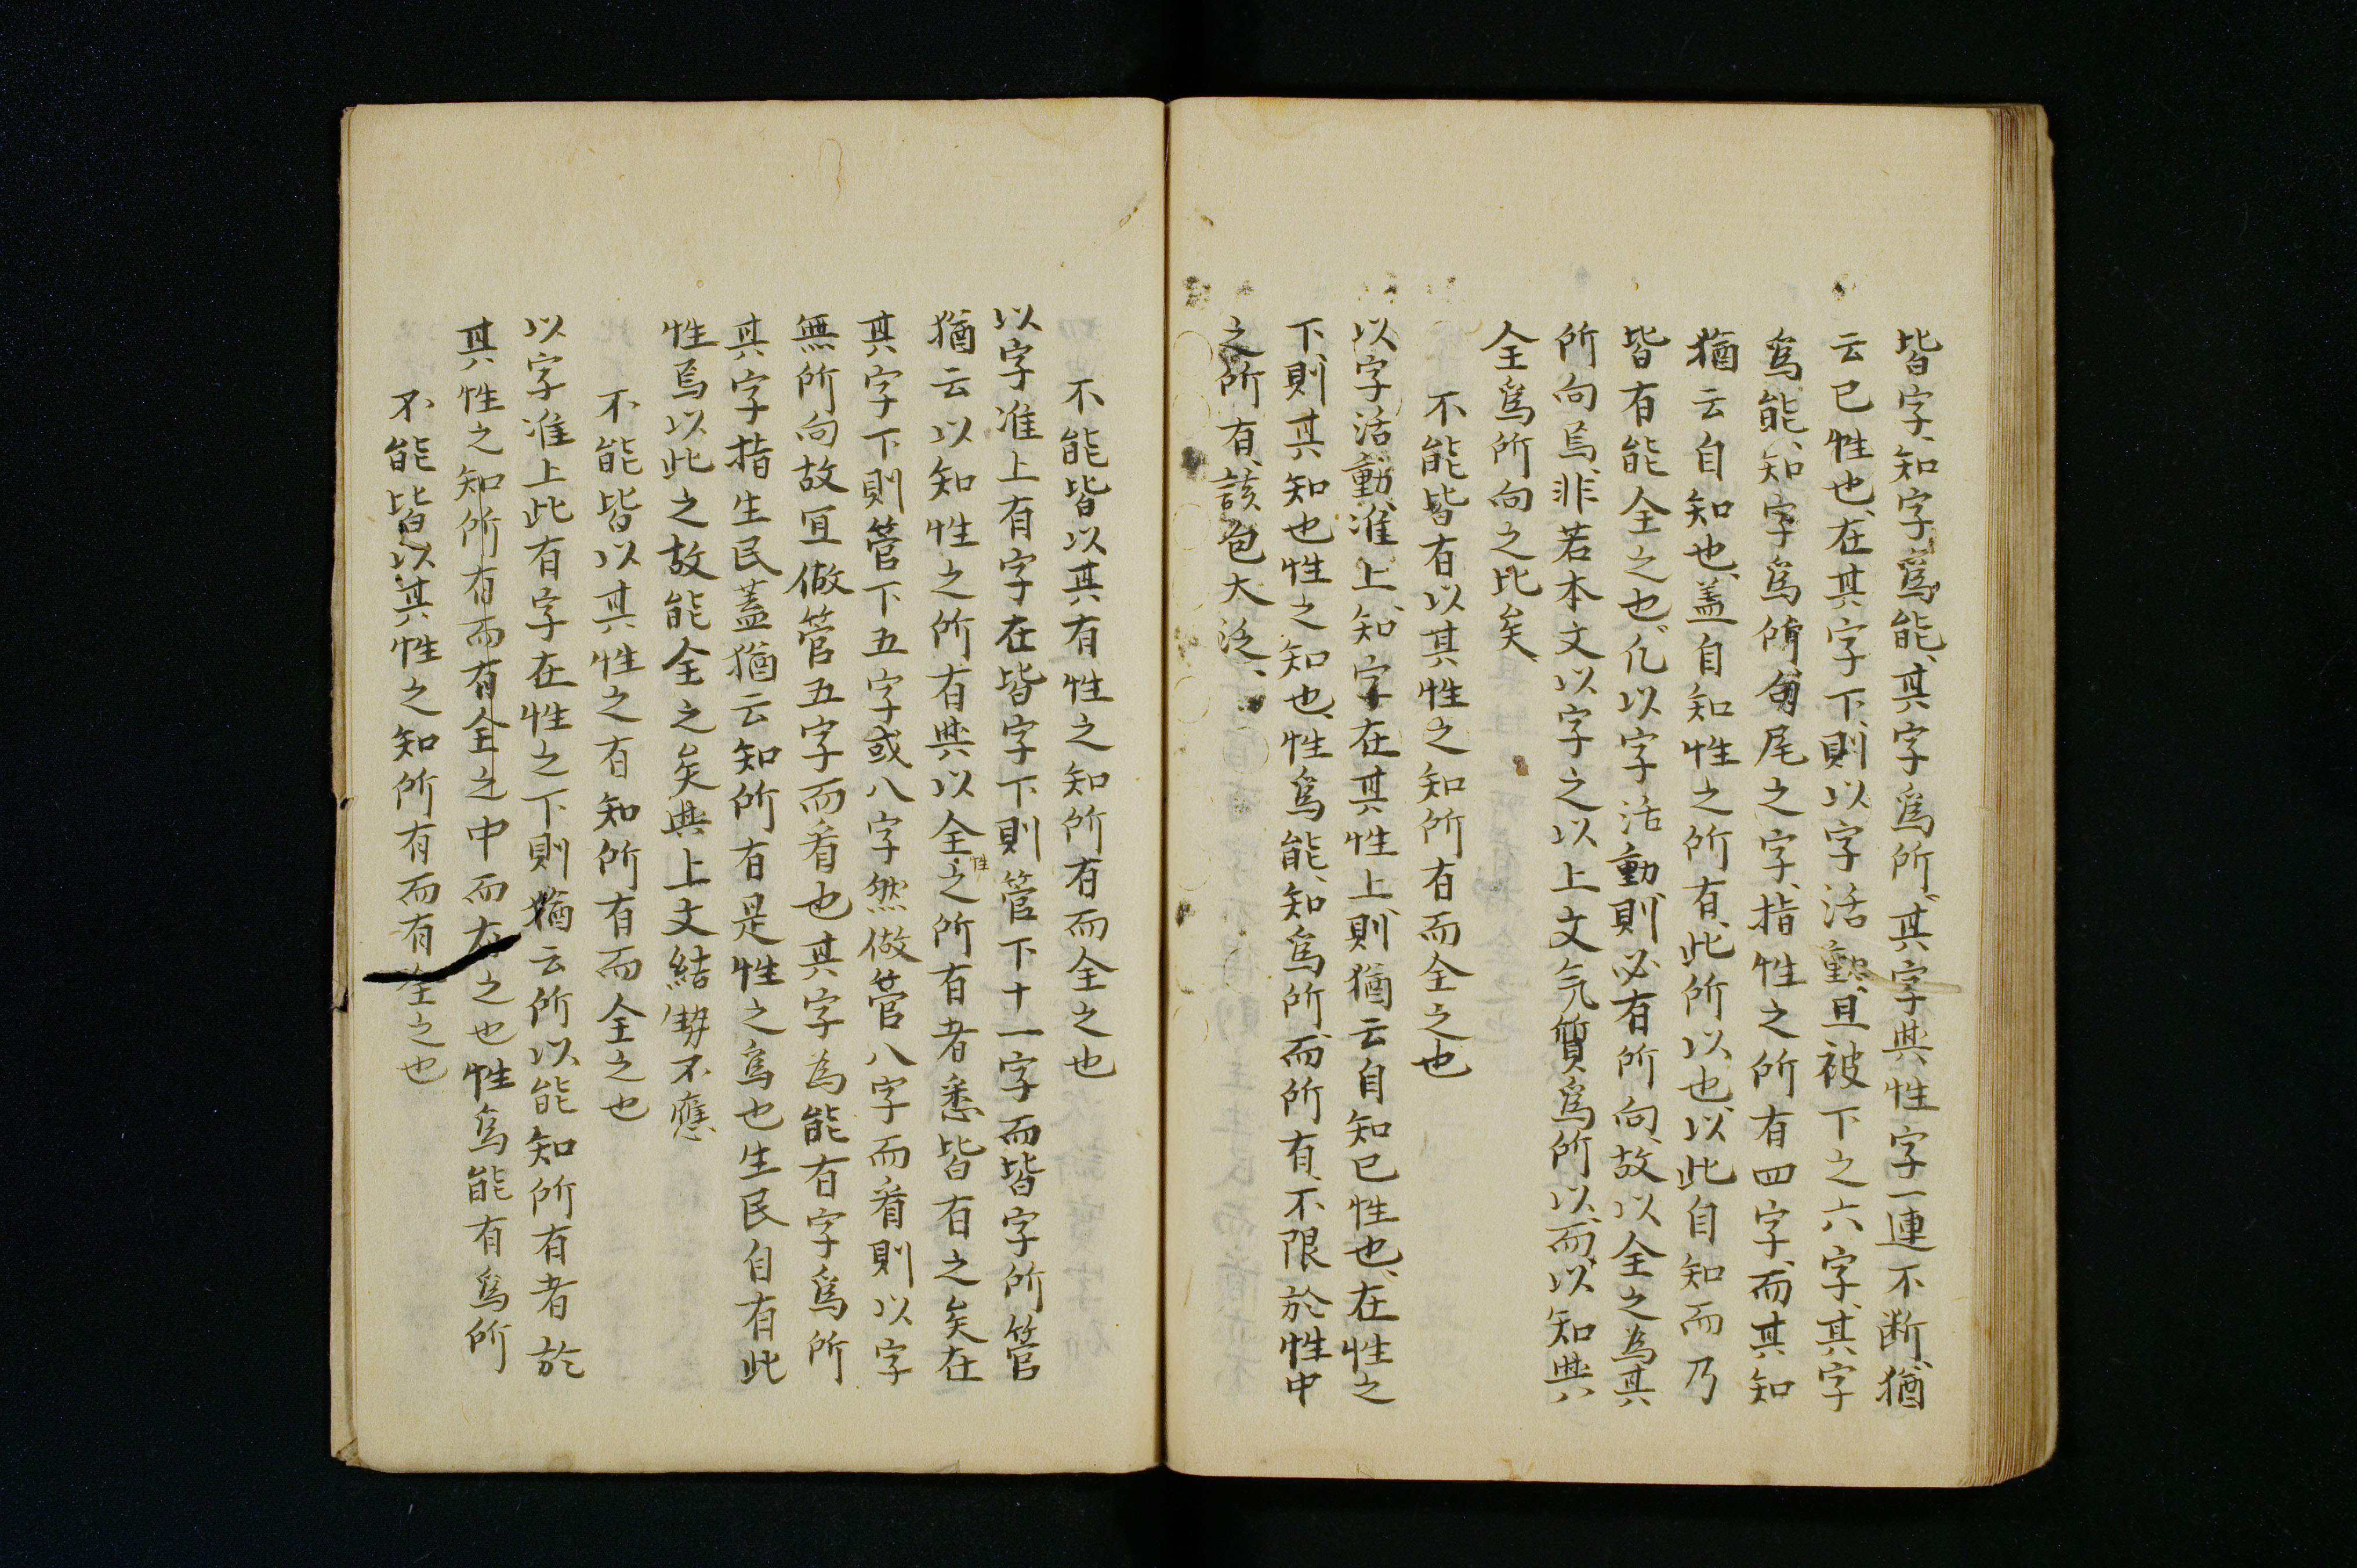 皆字、知字爲能、其字爲所、其字與性字一連不断、猶
云已性也、在其字下、則以字活動、且被下之六字、其字
爲能、知字爲所、自尾之字、指性之所有四字、而其知
猶云自知也、盖自知性之所有、此所以也、以此自知而乃
皆有能全之也、凢以字活動、則必有所向、故以全之為其
所向焉、非若本文以字之以上文気質爲所以、而以知與
全爲所向之比矣、
不能皆有以其性之知所有而全之也
以字活動、准上、知字在其性上、則猶云自知已性也、在性之
下、則其知也性之知也、性爲能、知爲所、而所有、不限於性中
之所有、該包大泛、
不能皆以其有性之知所有而全之也
以字准上有字在皆字下則管下十一字而皆字所管
猶云以知性之所有與以全性之所有者悉皆有之矣在
其字下則管下五字或八字然做管八字而看則以字
無所向故冝做管五字而看也其字為能有字爲所
其字指生民蓋猶云知所有是性之爲也生民自有此
性焉以此之故能全之矣與上文結勢不應
不能皆以其性之有知所有而全之也
以字准上此有字在性之下則猶云所以能知所有者於
其性之知所有而有全之中而有之也性爲能有爲所
不能皆以其性之知所有而有全之也